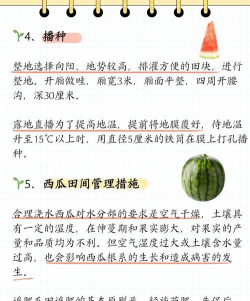 4、播种
整地选择向阳、地势较高，排灌方便的田块，进行
整地。开厢做畦，厢宽3米，厢面平整，四周开腰
沟，深30厘米。
露地直播为了提高地温，提前将地膜覆好，待地温
升至15℃以上时，用直径5厘米的铁筒在膜上打孔播
种。
5、西瓜田间管理措施
合理浇水西瓜对水分部的要求是空气干燥，土壤具
有一定的湿度，在伸蔓期和果实膨大，对果实的产
量和品质均为不利。但空气湿度过大或土壤含水量
过高，也会影响西瓜根系的生长和造成病害的发
生。